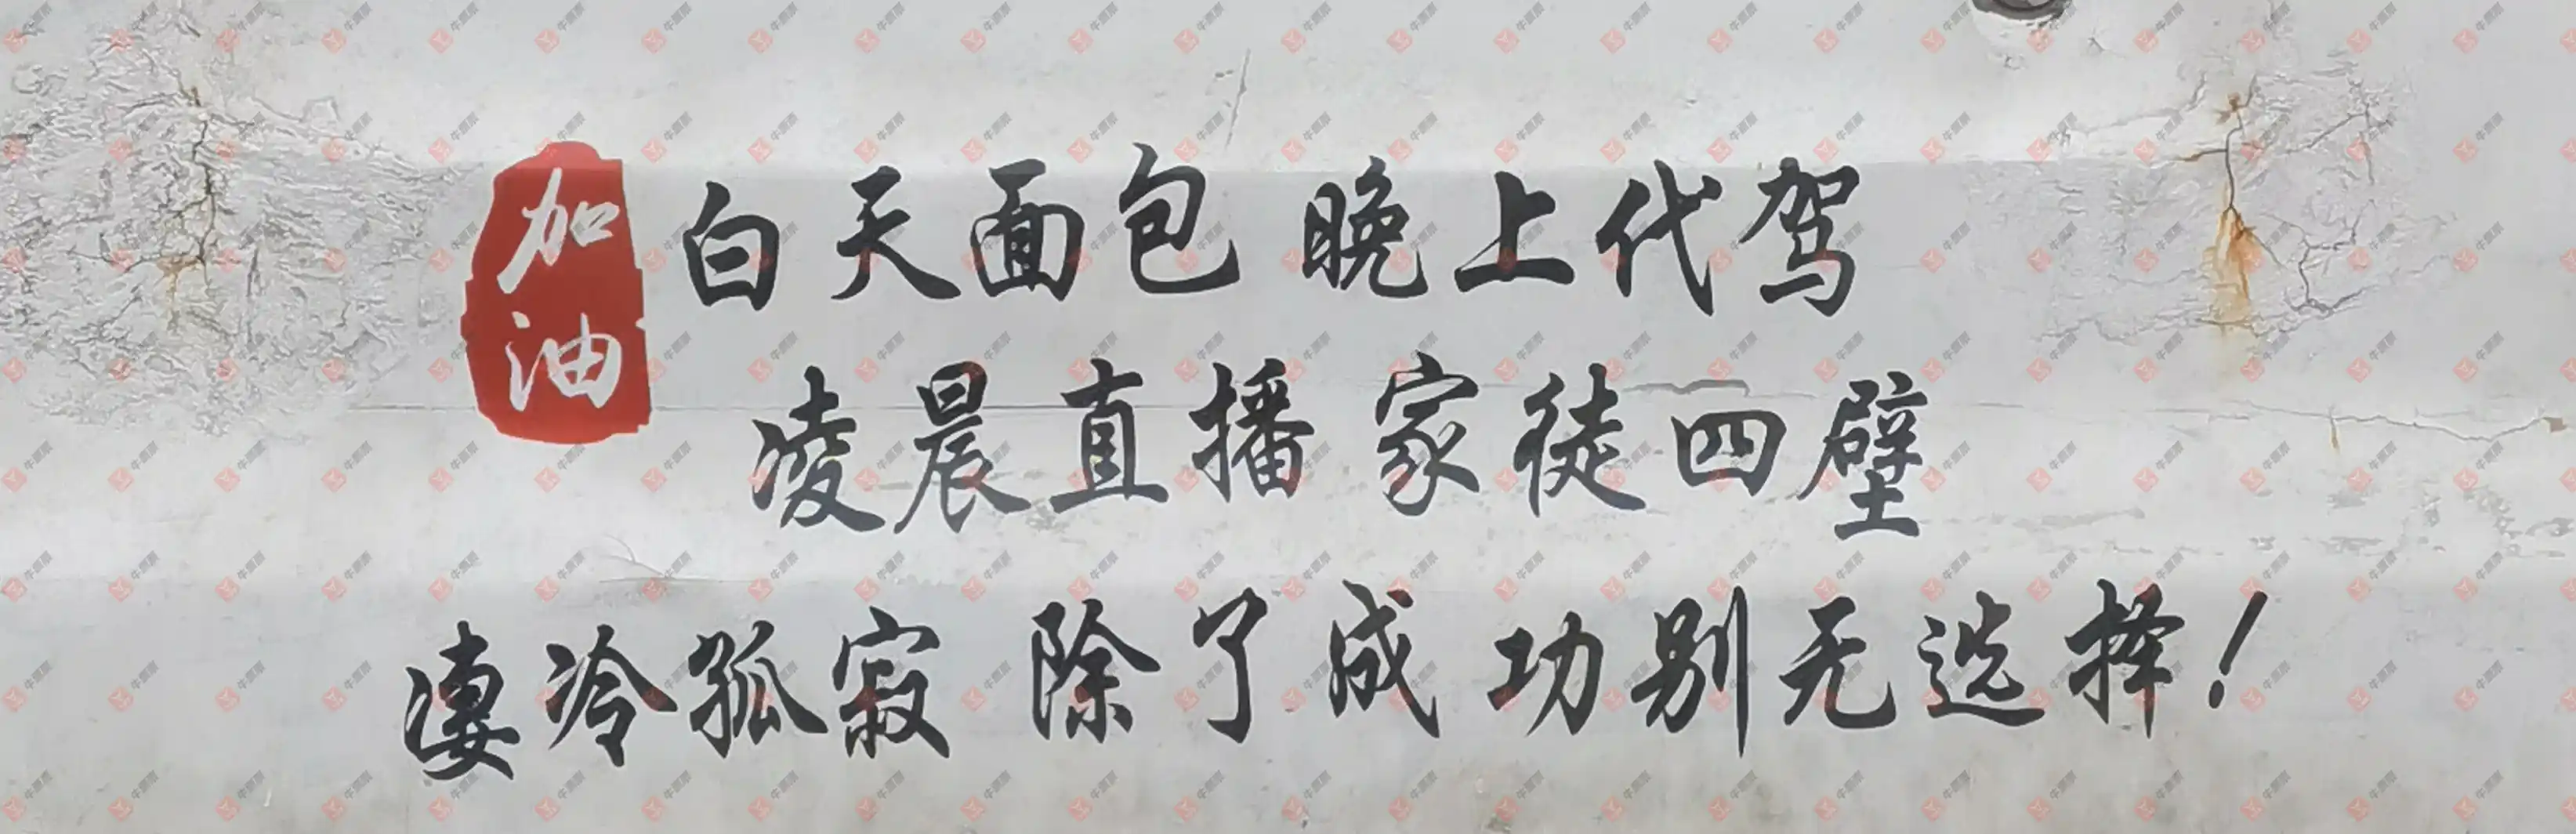 加油
白天面包 晚上代驾
凌晨直播 家徒四壁
凄冷孤寂 除了成功别无选择！
牛票票